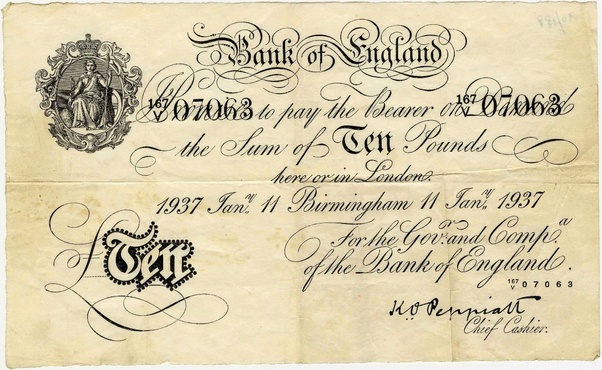 Bank of England
167/V 07063 167/V 07063
Promise to pay the Bearer on Demand
the Sum of Ten Pounds
here or in London.
1937 Jan.y 11 Birmingham 11 Jan.y 1937
For the Gov.r and Comp.a
of the Bank of England.
167/V 07063
£Ten
K.O Peppiatt
Chief Cashier.